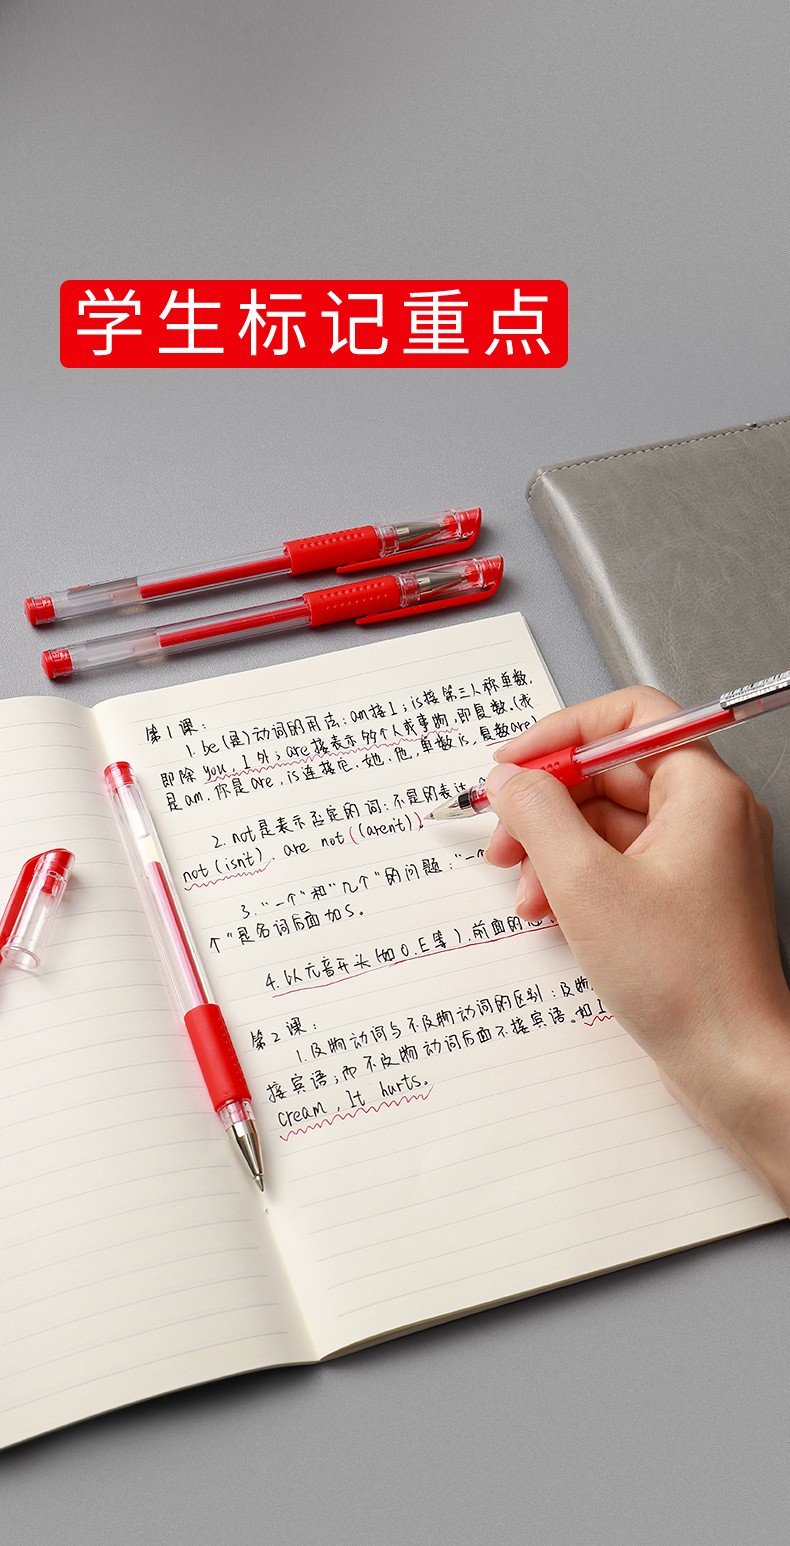 学生标记重点
第1课:
1. be(是)动词的用法: am接I; is接第三人称单数,
即除you, I外; are接表示多个人或事物,即复数,(我
是am, 你是are, is连接它、她、他, 单数is, 复数are)
2. not是表示否定的词: 不是的表达
not (isn't), are not (aren't).
3. "一个"和"几个"的问题: "一个
个"是名词后面加S。
4. 以元音开头(如O.E等), 前面的
第2课:
1. 及物动词与不及物动词的区别: 及物
接宾语; 而不及物动词后面不接宾语。如I
cream, It hurts。